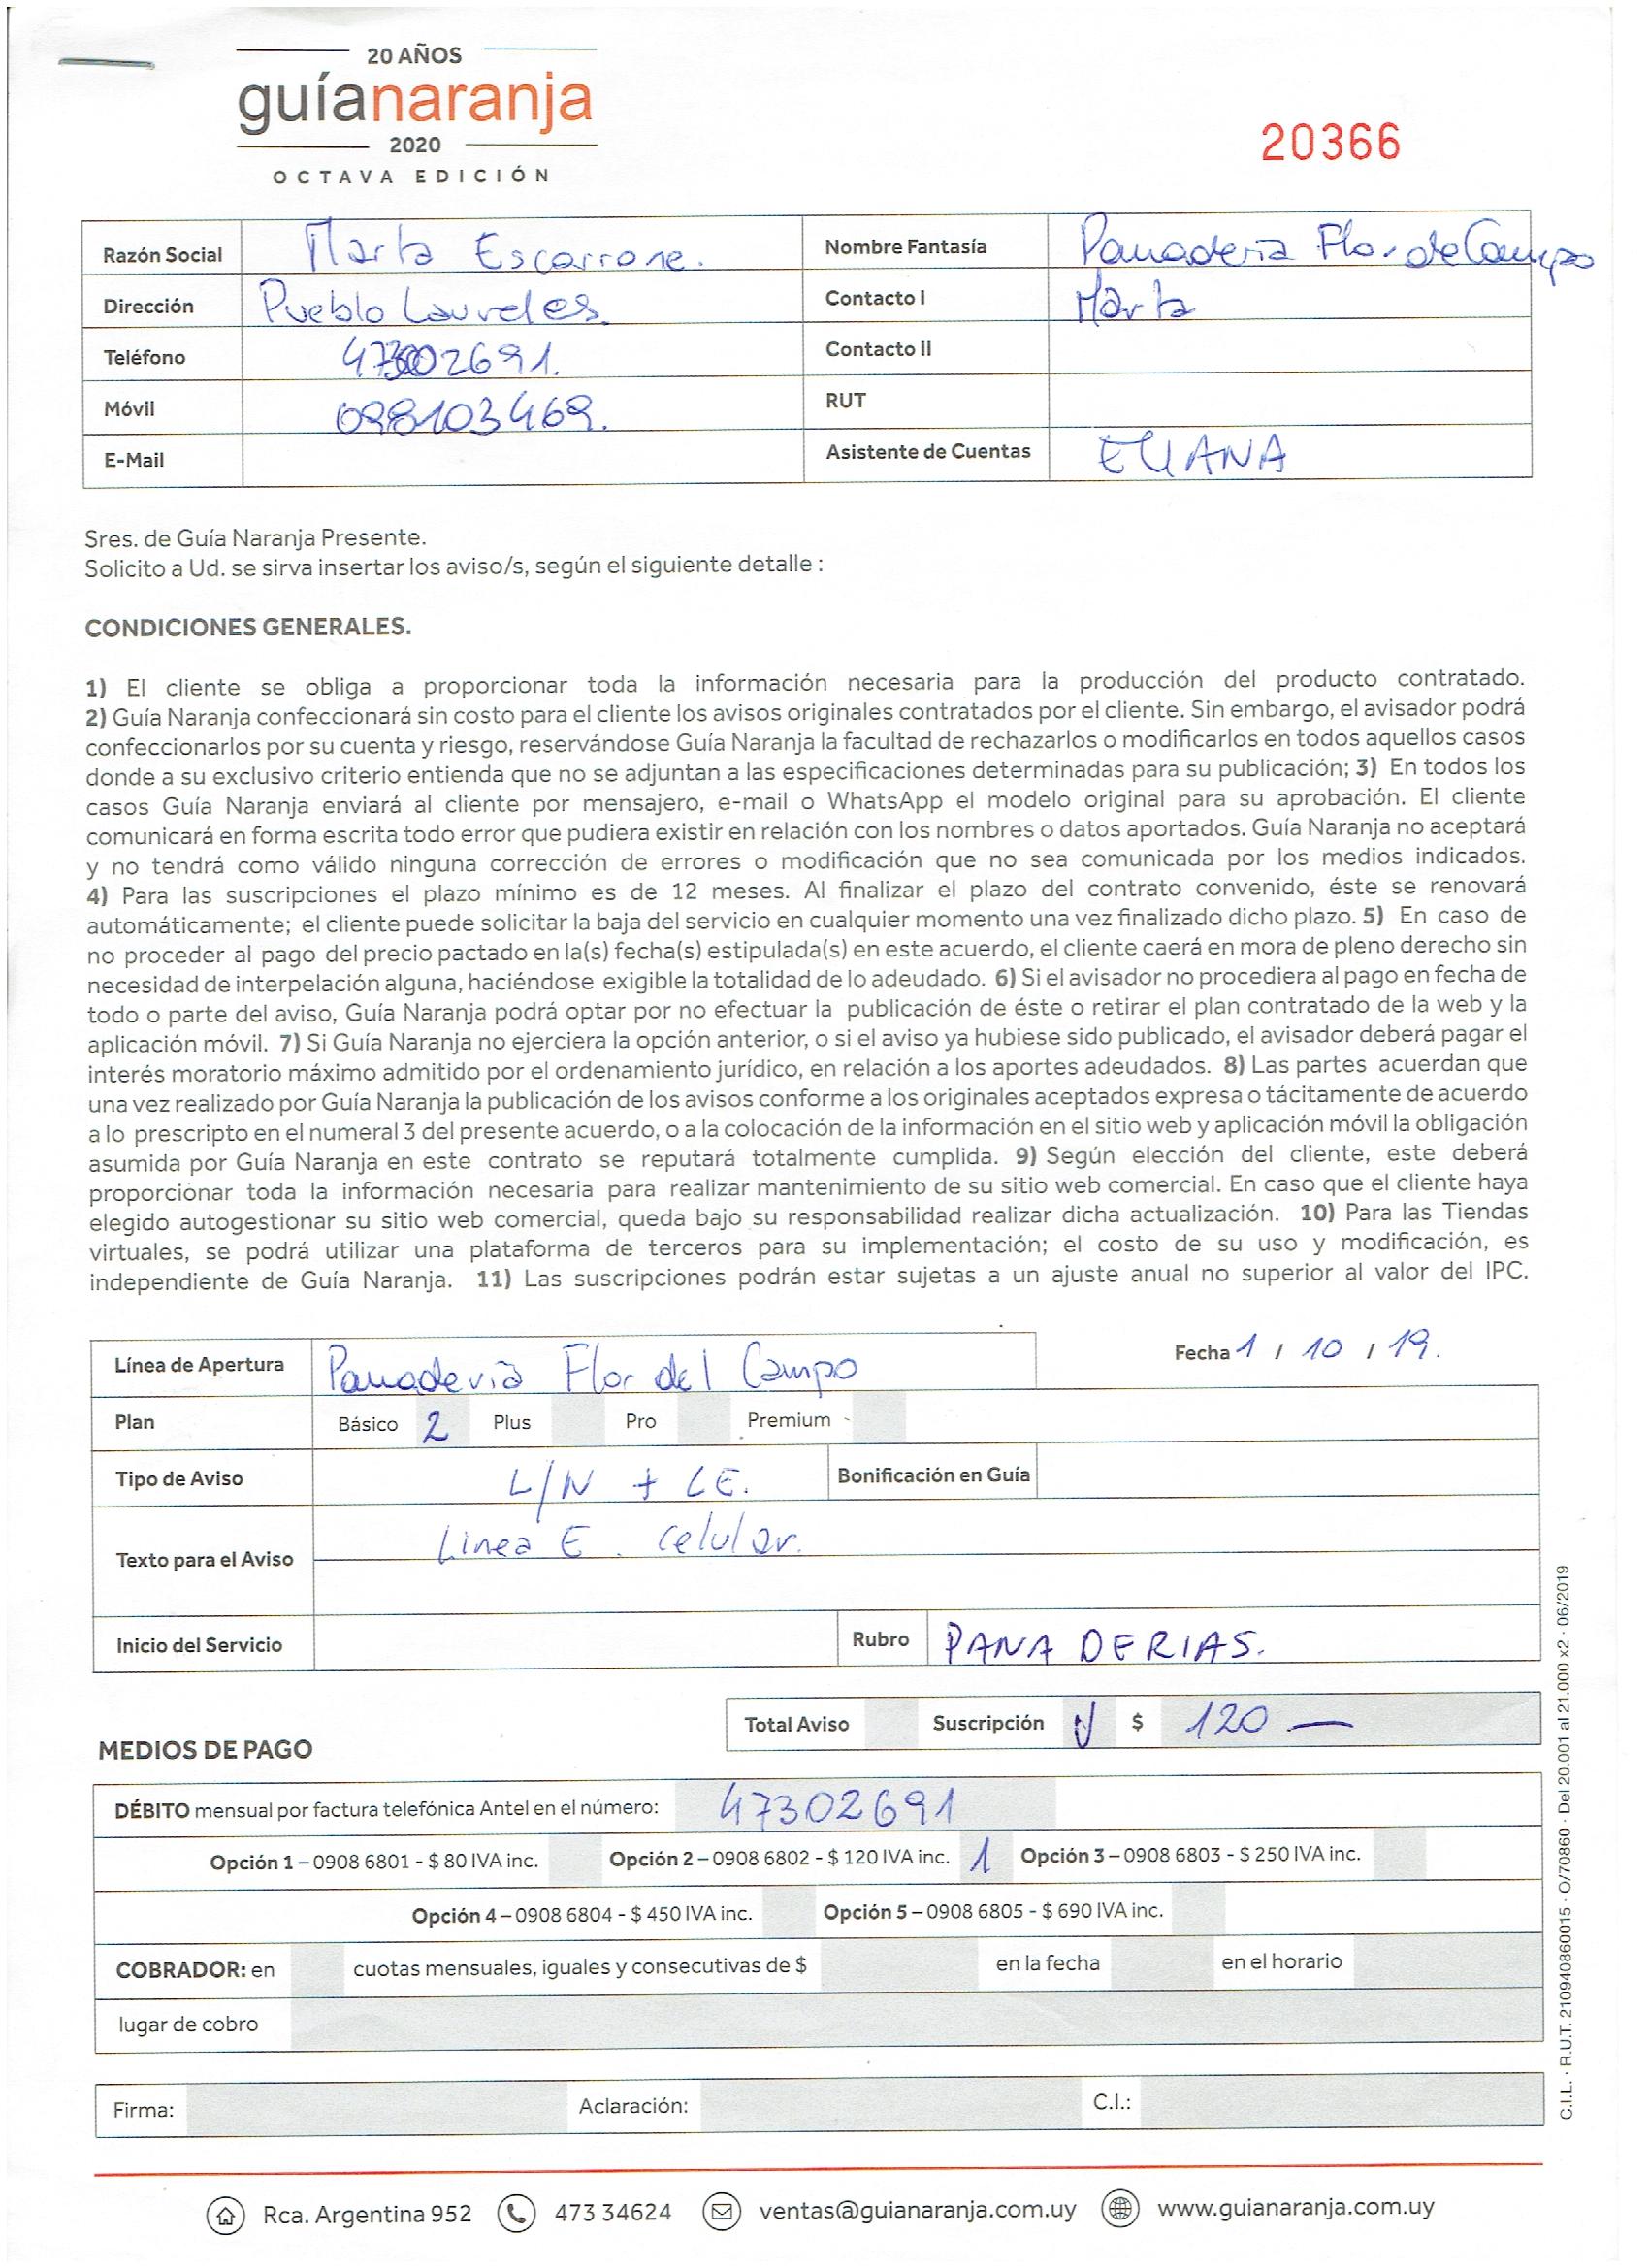 20 AÑOS
guíanaranja
2020
OCTAVA EDICIÓN
20366
Razón Social Marta Escarrone. Nombre Fantasía Panaderia Flor de Campo
Dirección Pueblo Laureles. Contacto I Marta
Teléfono 47302691. Contacto II
Móvil 098103469. RUT
E-Mail Asistente de Cuentas ELIANA
Sres. de Guía Naranja Presente.
Solicito a Ud. se sirva insertar los aviso/s, según el siguiente detalle :
CONDICIONES GENERALES.
1) El cliente se obliga a proporcionar toda la información necesaria para la producción del producto contratado.
2) Guía Naranja confeccionará sin costo para el cliente los avisos originales contratados por el cliente. Sin embargo, el avisador podrá
confeccionarlos por su cuenta y riesgo, reservándose Guía Naranja la facultad de rechazarlos o modificarlos en todos aquellos casos
donde a su exclusivo criterio entienda que no se adjuntan a las especificaciones determinadas para su publicación; 3) En todos los
casos Guía Naranja enviará al cliente por mensajero, e-mail o WhatsApp el modelo original para su aprobación. El cliente
comunicará en forma escrita todo error que pudiera existir en relación con los nombres o datos aportados. Guía Naranja no aceptará
y no tendrá como válido ninguna corrección de errores o modificación que no sea comunicada por los medios indicados.
4) Para las suscripciones el plazo mínimo es de 12 meses. Al finalizar el plazo del contrato convenido, éste se renovará
automáticamente; el cliente puede solicitar la baja del servicio en cualquier momento una vez finalizado dicho plazo. 5) En caso de
no proceder al pago del precio pactado en la(s) fecha(s) estipulada(s) en este acuerdo, el cliente caerá en mora de pleno derecho sin
necesidad de interpelación alguna, haciéndose exigible la totalidad de lo adeudado. 6) Si el avisador no procediera al pago en fecha de
todo o parte del aviso, Guía Naranja podrá optar por no efectuar la publicación de éste o retirar el plan contratado de la web y la
aplicación móvil. 7) Si Guía Naranja no ejerciera la opción anterior, o si el aviso ya hubiese sido publicado, el avisador deberá pagar el
interés moratorio máximo admitido por el ordenamiento jurídico, en relación a los aportes adeudados. 8) Las partes acuerdan que
una vez realizado por Guía Naranja la publicación de los avisos conforme a los originales aceptados expresa o tácitamente de acuerdo
a lo prescripto en el numeral 3 del presente acuerdo, o a la colocación de la información en el sitio web y aplicación móvil la obligación
asumida por Guía Naranja en este contrato se reputará totalmente cumplida. 9) Según elección del cliente, este deberá
proporcionar toda la información necesaria para realizar mantenimiento de su sitio web comercial. En caso que el cliente haya
elegido autogestionar su sitio web comercial, queda bajo su responsabilidad realizar dicha actualización. 10) Para las Tiendas
virtuales, se podrá utilizar una plataforma de terceros para su implementación; el costo de su uso y modificación, es
independiente de Guía Naranja. 11) Las suscripciones podrán estar sujetas a un ajuste anual no superior al valor del IPC.
Línea de Apertura Panaderia Flor del Campo Fecha 1 / 10 / 19.
Plan Básico 2 Plus Pro Premium
Tipo de Aviso L/N + LE. Bonificación en Guía
Texto para el Aviso Linea E. celular.
Inicio del Servicio Rubro PANADERIAS.
Total Aviso Suscripción $ 120 —
MEDIOS DE PAGO
DÉBITO mensual por factura telefónica Antel en el número: 47302691
Opción 1 – 0908 6801 - $ 80 IVA inc. Opción 2 – 0908 6802 - $ 120 IVA inc. 1 Opción 3 – 0908 6803 - $ 250 IVA inc.
Opción 4 – 0908 6804 - $ 450 IVA inc. Opción 5 – 0908 6805 - $ 690 IVA inc.
COBRADOR: en cuotas mensuales, iguales y consecutivas de $ en la fecha en el horario
lugar de cobro
Firma: Aclaración: C.I.:
Rca. Argentina 952 473 34624 ventas@guianaranja.com.uy www.guianaranja.com.uy
C.I.L. · R.U.T. 210940860015 · O/70860 · Del 20.001 al 21.000 x2 · 06/2019